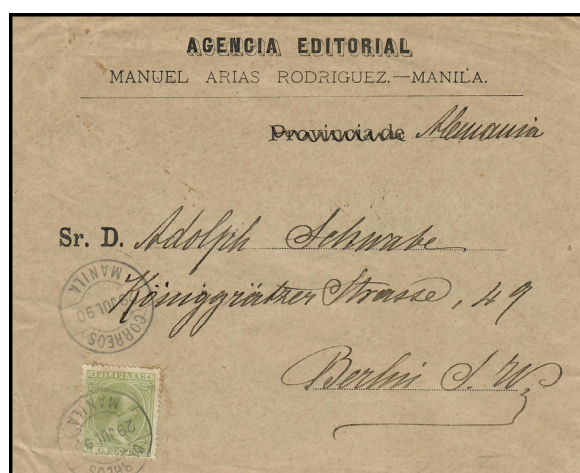 AGENCIA EDITORIAL
MANUEL ARIAS RODRIGUEZ.—MANILA.
Provincia de Alemania
Sr. D. Adolph Schwabe
Königgrätzer Strasse, 49
Berlin S. W.
CORREOS
MANILA
JUL 90
FILIPINAS
29 JUL 9
MANILA